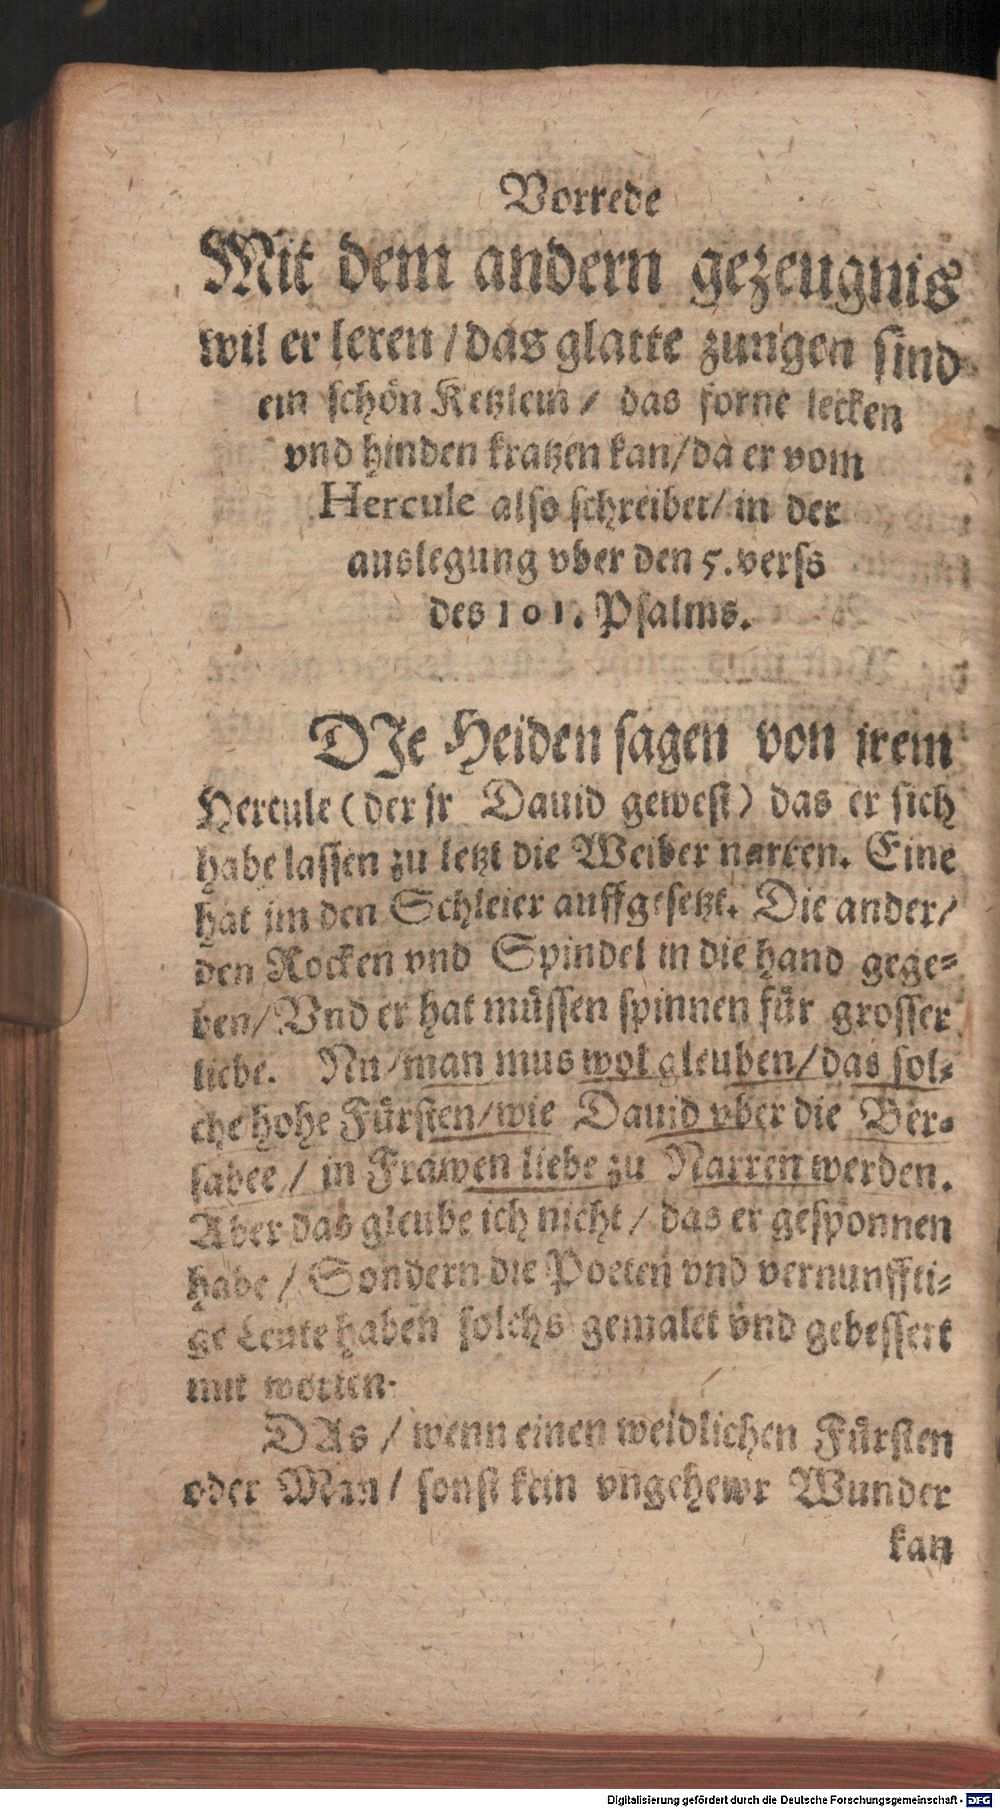 Vorrede
Mit dem andern gezeugnis
wil er leren / das glatte zungen sind
ein schön Ketzlein / das forne lecken
vnd hinden kratzen kan / da er vom
Hercule also schreibet / in der
auslegung vber den 5. verss
des 101. Psalms.
DJe Heiden sagen von jrem
Hercule ( der jr Dauid gewest ) das er sich
habe lassen zu letzt die Weiber narren. Eine
hat jm den Schleier auffgesetzt. Die ander /
den Rocken vnd Spindel in die hand gege-
ben / Vnd er hat müssen spinnen für grosser
liebe. Nu / man mus wol gleuben / das sol-
che hohe Fürsten / wie Dauid vber die Ber-
sabee / in Frawen liebe zu Narren werden.
Aber das gleube ich nicht / das er gesponnen
habe / Sondern die Poeten vnd vernunffti-
ge Leute haben solchs gemalet vnd gebessert
mit worten.
DAs / wenn einen weidlichen Fürsten
oder Man / sonst kein vngehewr Wunder
kan
Digitalisierung gefördert durch die Deutsche Forschungsgemeinschaft - DFG